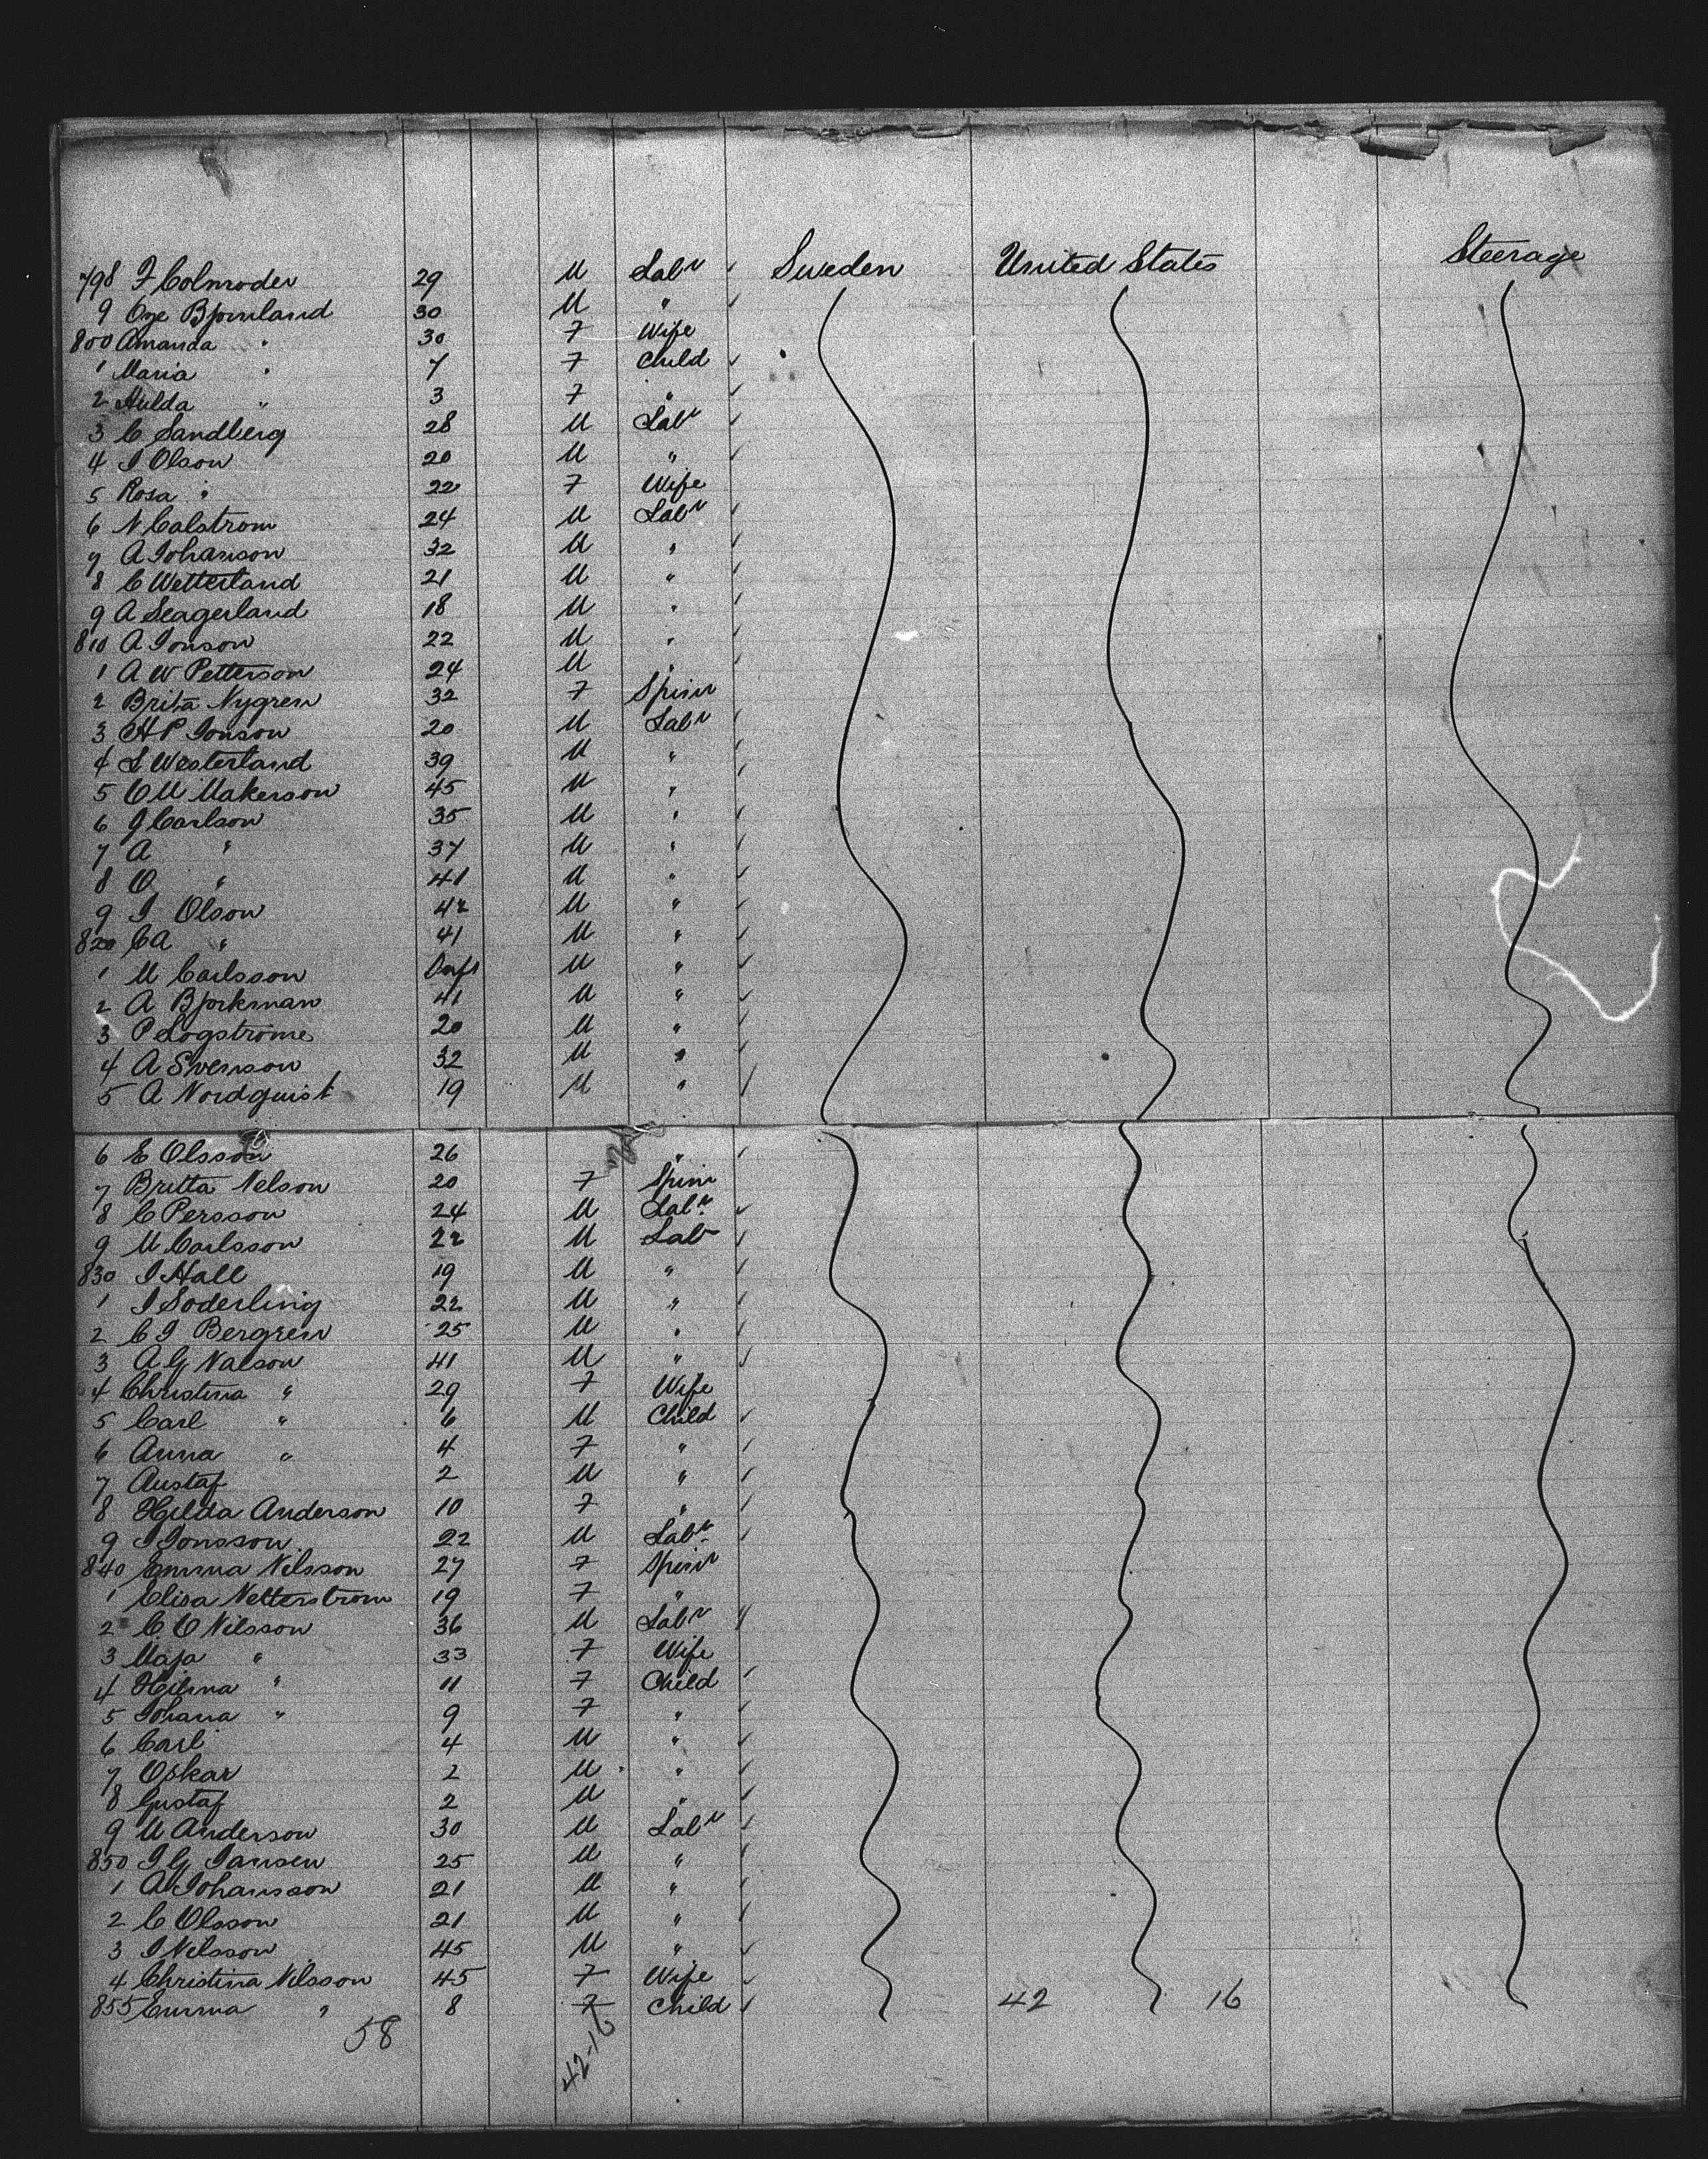 798 F Colmroder 29 M Labr Sweden United States Steerage
9 Oze Bjornland 30 M "
800 Amanda " 30 F Wife
1 Maria " 7 F Child
2 Hulda " 3 F "
3 C Sandberg 28 M Labr
4 I Olson 20 M "
5 Rosa " 22 F Wife
6 N Calstrom 24 M Labr
7 A Johanson 32 M "
8 C Wetterland 21 M "
9 A Seagerland 18 M "
810 A Jonson 22 M "
1 A W Petterson 24 M "
2 Brita Nygren 32 F Spinr
3 H P Jonson 20 M Labr
4 L Westerland 39 M "
5 O M Makerson 45 M "
6 J Carlson 35 M "
7 A " 37 M "
8 O " 41 M "
9 I Olson 42 M "
820 C A " 41 M "
1 M Carlsson M "
2 A Bjorkman 41 M "
3 P Logstrome 20 M "
4 A Svenson 32 M "
5 A Nordquist 19 M "
6 E Olsson 26 "
7 Britta Nelson 20 F Spinr
8 C Persson 24 M Labr
9 M Carlsson 22 M Labr
830 I Hall 19 M "
1 I Soderling 22 M "
2 C I Bergren 25 M "
3 A G Nalson 41 M "
4 Christina " 29 F Wife
5 Carl " 6 M Child
6 Anna " 4 F "
7 Austaf 2 M "
8 Hilda Anderson 10 F "
9 I Jonsson 22 M Labr
840 Emma Nilsson 27 F Spinr
1 Elisa Netterstrom 19 F "
2 C O Nilsson 36 M Labr
3 Maja " 33 F Wife
4 Hilma " 11 F Child
5 Johana " 9 F "
6 Carl 4 M "
7 Oskar 2 M "
8 Gustaf 2 M "
9 M Anderson 30 M Labr
850 I G Jansen 25 M "
1 A Johansson 21 M "
2 C Olsson 21 M "
3 I Nilsson 45 M "
4 Christina Nilsson 45 F Wife
855 Emma " 8 F Child 42 16
58 42-16